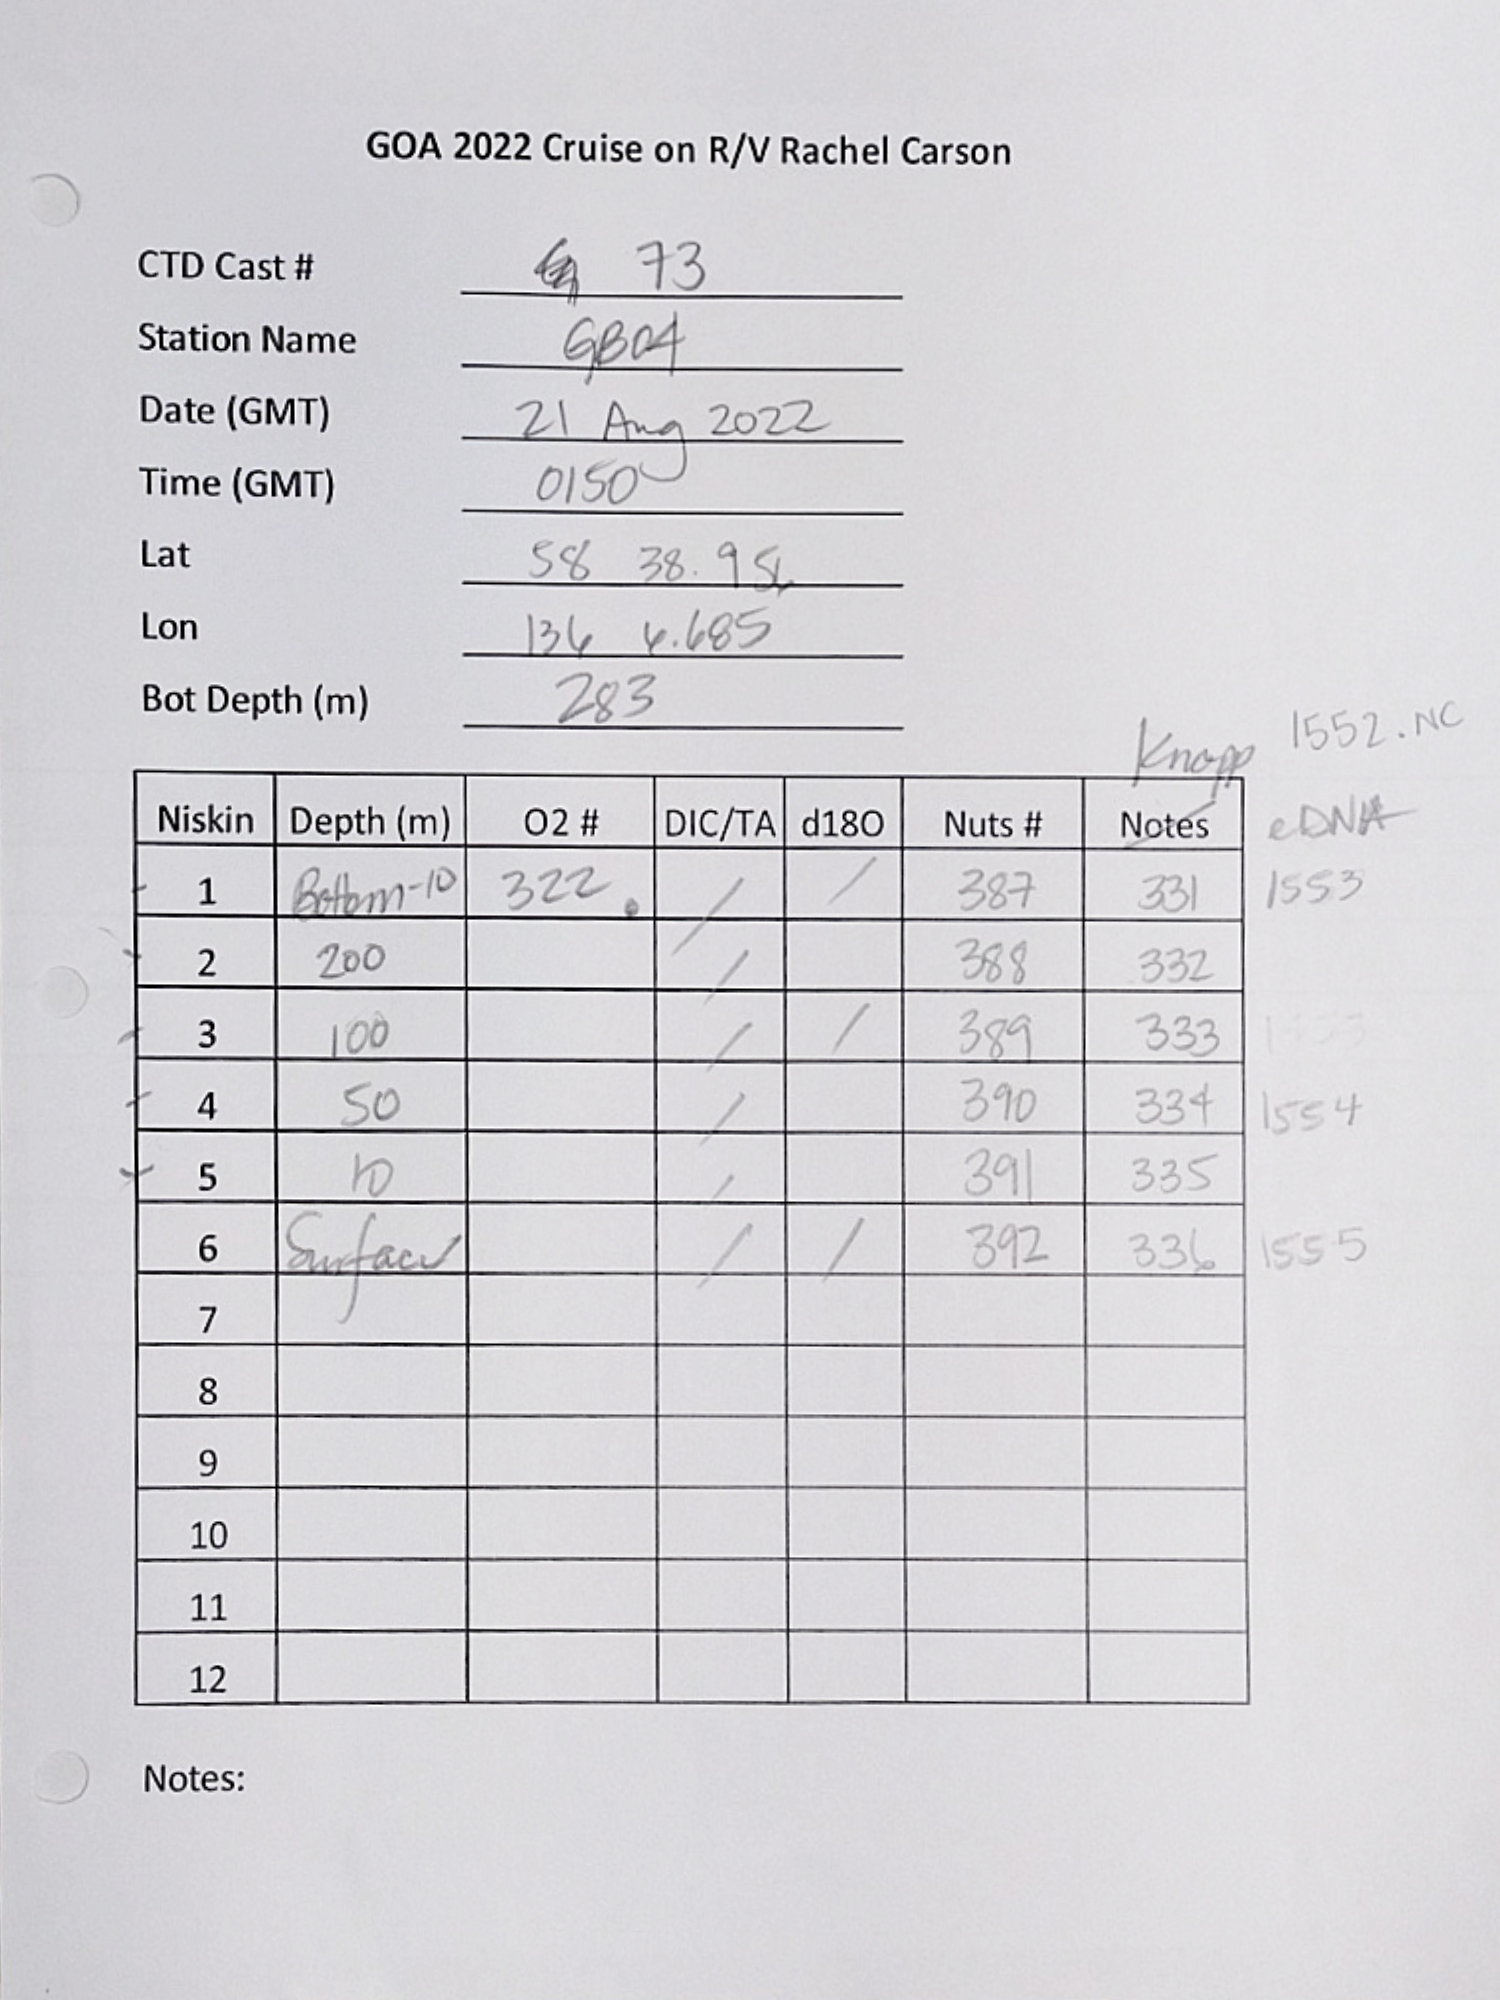 GOA 2022 Cruise on R/V Rachel Carson
CTD Cast # 73
Station Name GB04
Date (GMT) 21 Aug 2022
Time (GMT) 0150
Lat 58 38.956
Lon 136 4.685
Bot Depth (m) 283
Knapp 1552.NC
Niskin Depth (m) O2 # DIC/TA d18O Nuts # Notes eDNA
1 Bottom-10 322. / / 387 331 1553
2 200 / 388 332
3 100 / / 389 333
4 50 / 390 334 1554
5 10 / 391 335
6 Surface / / 392 336 1555
7
8
9
10
11
12
Notes: